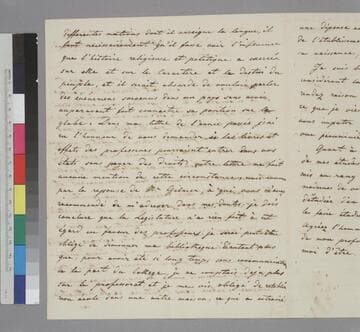 différentes nations dont il enseigne la langue, il
faut nécessairement qu'il fasse voir l'influence
que l'histoire religieuse et politique a exercée
sur elle et sur le caractère et le destin du
peuple, et il serait absurde de vouloir parler
des évènements survenus dans un pays sans avoir
auparavant fait connaître sa position sur le
globe. Dans ma lettre de l'année passée j'ai
eu l'honneur de vous demander si les livres et
effets des professeurs pourraient entrer dans vos
états sans payer des droits; votre lettre ne fait
aucune mention de cette circonstance, mais comme
par la réponse de Mr à qui vous m'avez
recommandé de m'adresser dans mes doutes, je dois
conclure que la législature n'a rien fait à cet
égard en faveur des professeurs, je serai peut-être
obligé de diminuer ma bibliothèque. D'autant plus
que pour avoir été si long temps sans communication
de la part du Collège, je ne comptais déjà plus
sur le professorat et je me vis obligé de rétablir
mon école dans une autre maison, ce qui a entraîné
une dépense
de l'établissement
sa naissance
Je suis
considérant
rendez raison
ce que je vien
vous importe
vos personnes
Quant à
de mes
mis en rang
mêmes de
détachés
le faire
agréer l'hom
de mon profond
moi d'être